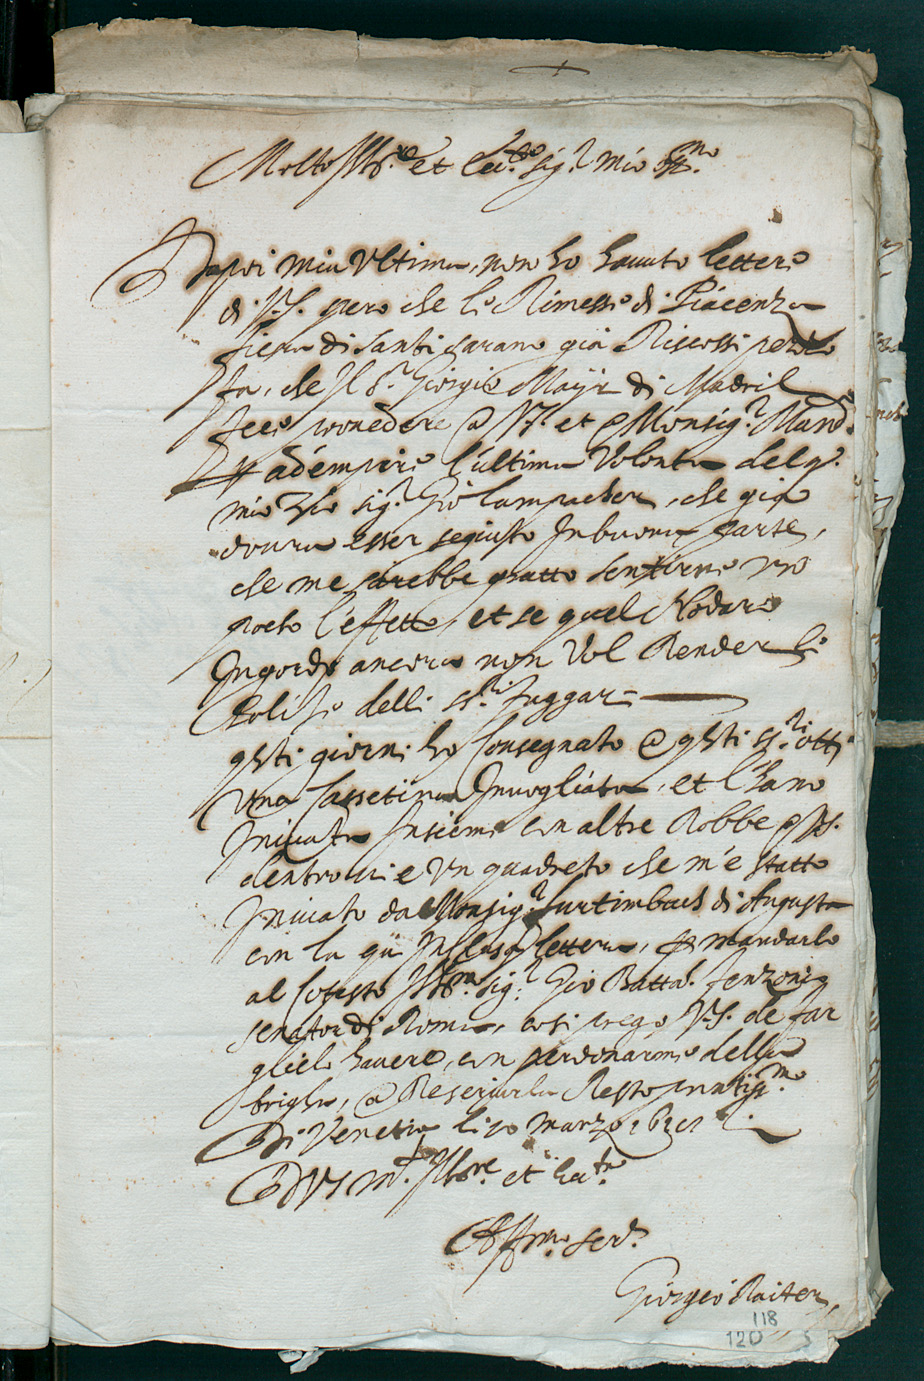 Molto Ill.re et Ecc.te sig.r mio oss.mo
Dapoi mia Ultima, non ho hauuto lettere
di V.S. pero che le Rimesse di Piacenza
fiera di santi sarano già Riscossi
fa, che Il S.r Giorgio Mayr di Madril
fece prouedere @ V.S. et @ Monsig.r Mand.
adempire l'ultima Volonta del q.
mio Zio sig.r Giò Lampacher, che già
doura esser seguito In buona parte,
che me sarebbe gratto sentirne un
poeto l'effetto, et se quel Nodaro
Ingordo ancora non Vol Render li
Polise delli ss.ri Fuggari
qsti giorni ho Consegnato @ qsti ss.ri Otti
Una Cassetina Inuogliata, et l'hano
Inuiata Insieme con altre Robbe @ V.S.
dentro ui e Un quadreto che m'è statto
Inuiato da Monsig.r Furtimbach di Augusta
con la qui Inclusa lettera, mandarlo
al Cotesto Ill.mo sig.r Giò Batta. Fenzonio
senator di Roma, cosi prego V.S. de far
glielo hauere, con perdonarmi della
brigha, @ Reseruirla Resto pntiss.mo
Di Venetia li 10 Marzo
D V.S. m.to Ill.re et Ecc.te
Aff.mo ser.
Giorgio Raiter
118
120